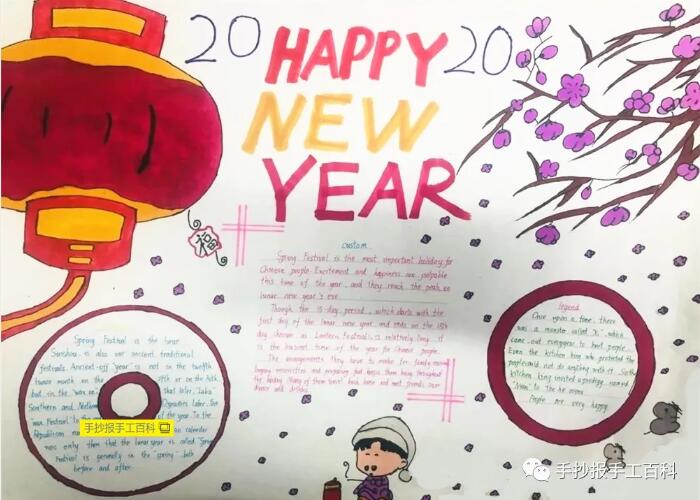 20 HAPPY 20
NEW
YEAR
福
custom
Spring Festival is the most important holiday for
Chinese people. Excitement and happiness are palpable
this time of the year, and they reach the peak on
lunar new year's eve.
Though the 15-day period, which starts with the
first day of the lunar new year and ends on the 15th
day (known as Lantern Festival) is relatively long, it
is the busiest time of the year for Chinese people.
The arrangements they have to make for family
reunions and preparing food keeps them busy throughout
the holiday. Many of them back home and meet friends over
dinner and drinks.
legend
Once upon a time, there
was a monster called "Xi", which
come out every year to hurt people.
Even the kitchen king who protected the
people could not do anything with it. So the
kitchen king invited a prodigy named
"Nian". In the end
People are very happy.
Spring Festival is the lunar
is also our ancient traditional
festivals. Ancient "off year" is not on the twelfth
lunar month on the
Southern and
Republican
was only then that the lunar year is called "Spring
Festival is generally in the "spring" both
before and after.
手抄报手工百科
手抄报手工百科